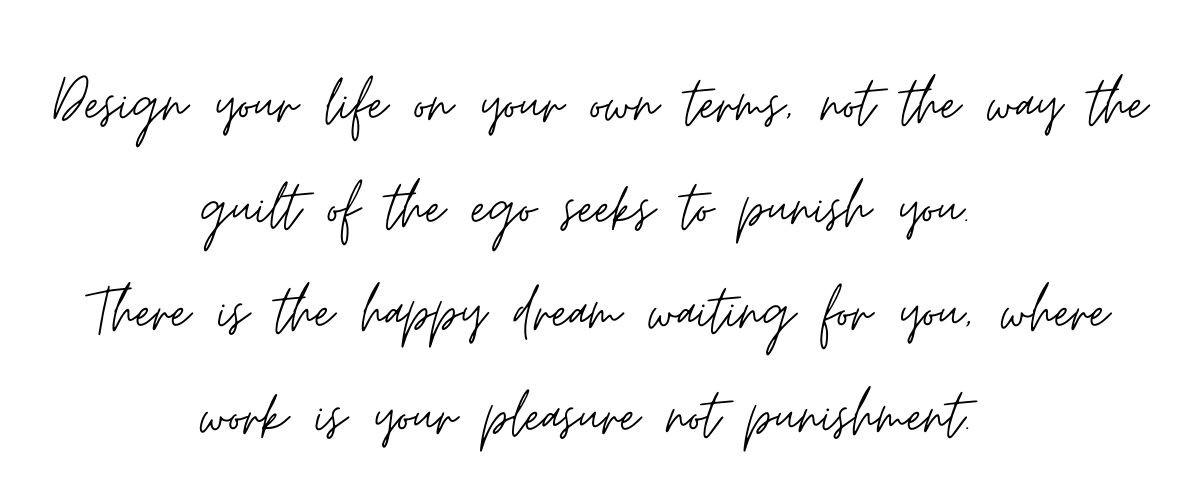 Design your life on your own terms, not the way the
guilt of the ego seeks to punish you.
There is the happy dream waiting for you, where
work is your pleasure not punishment.